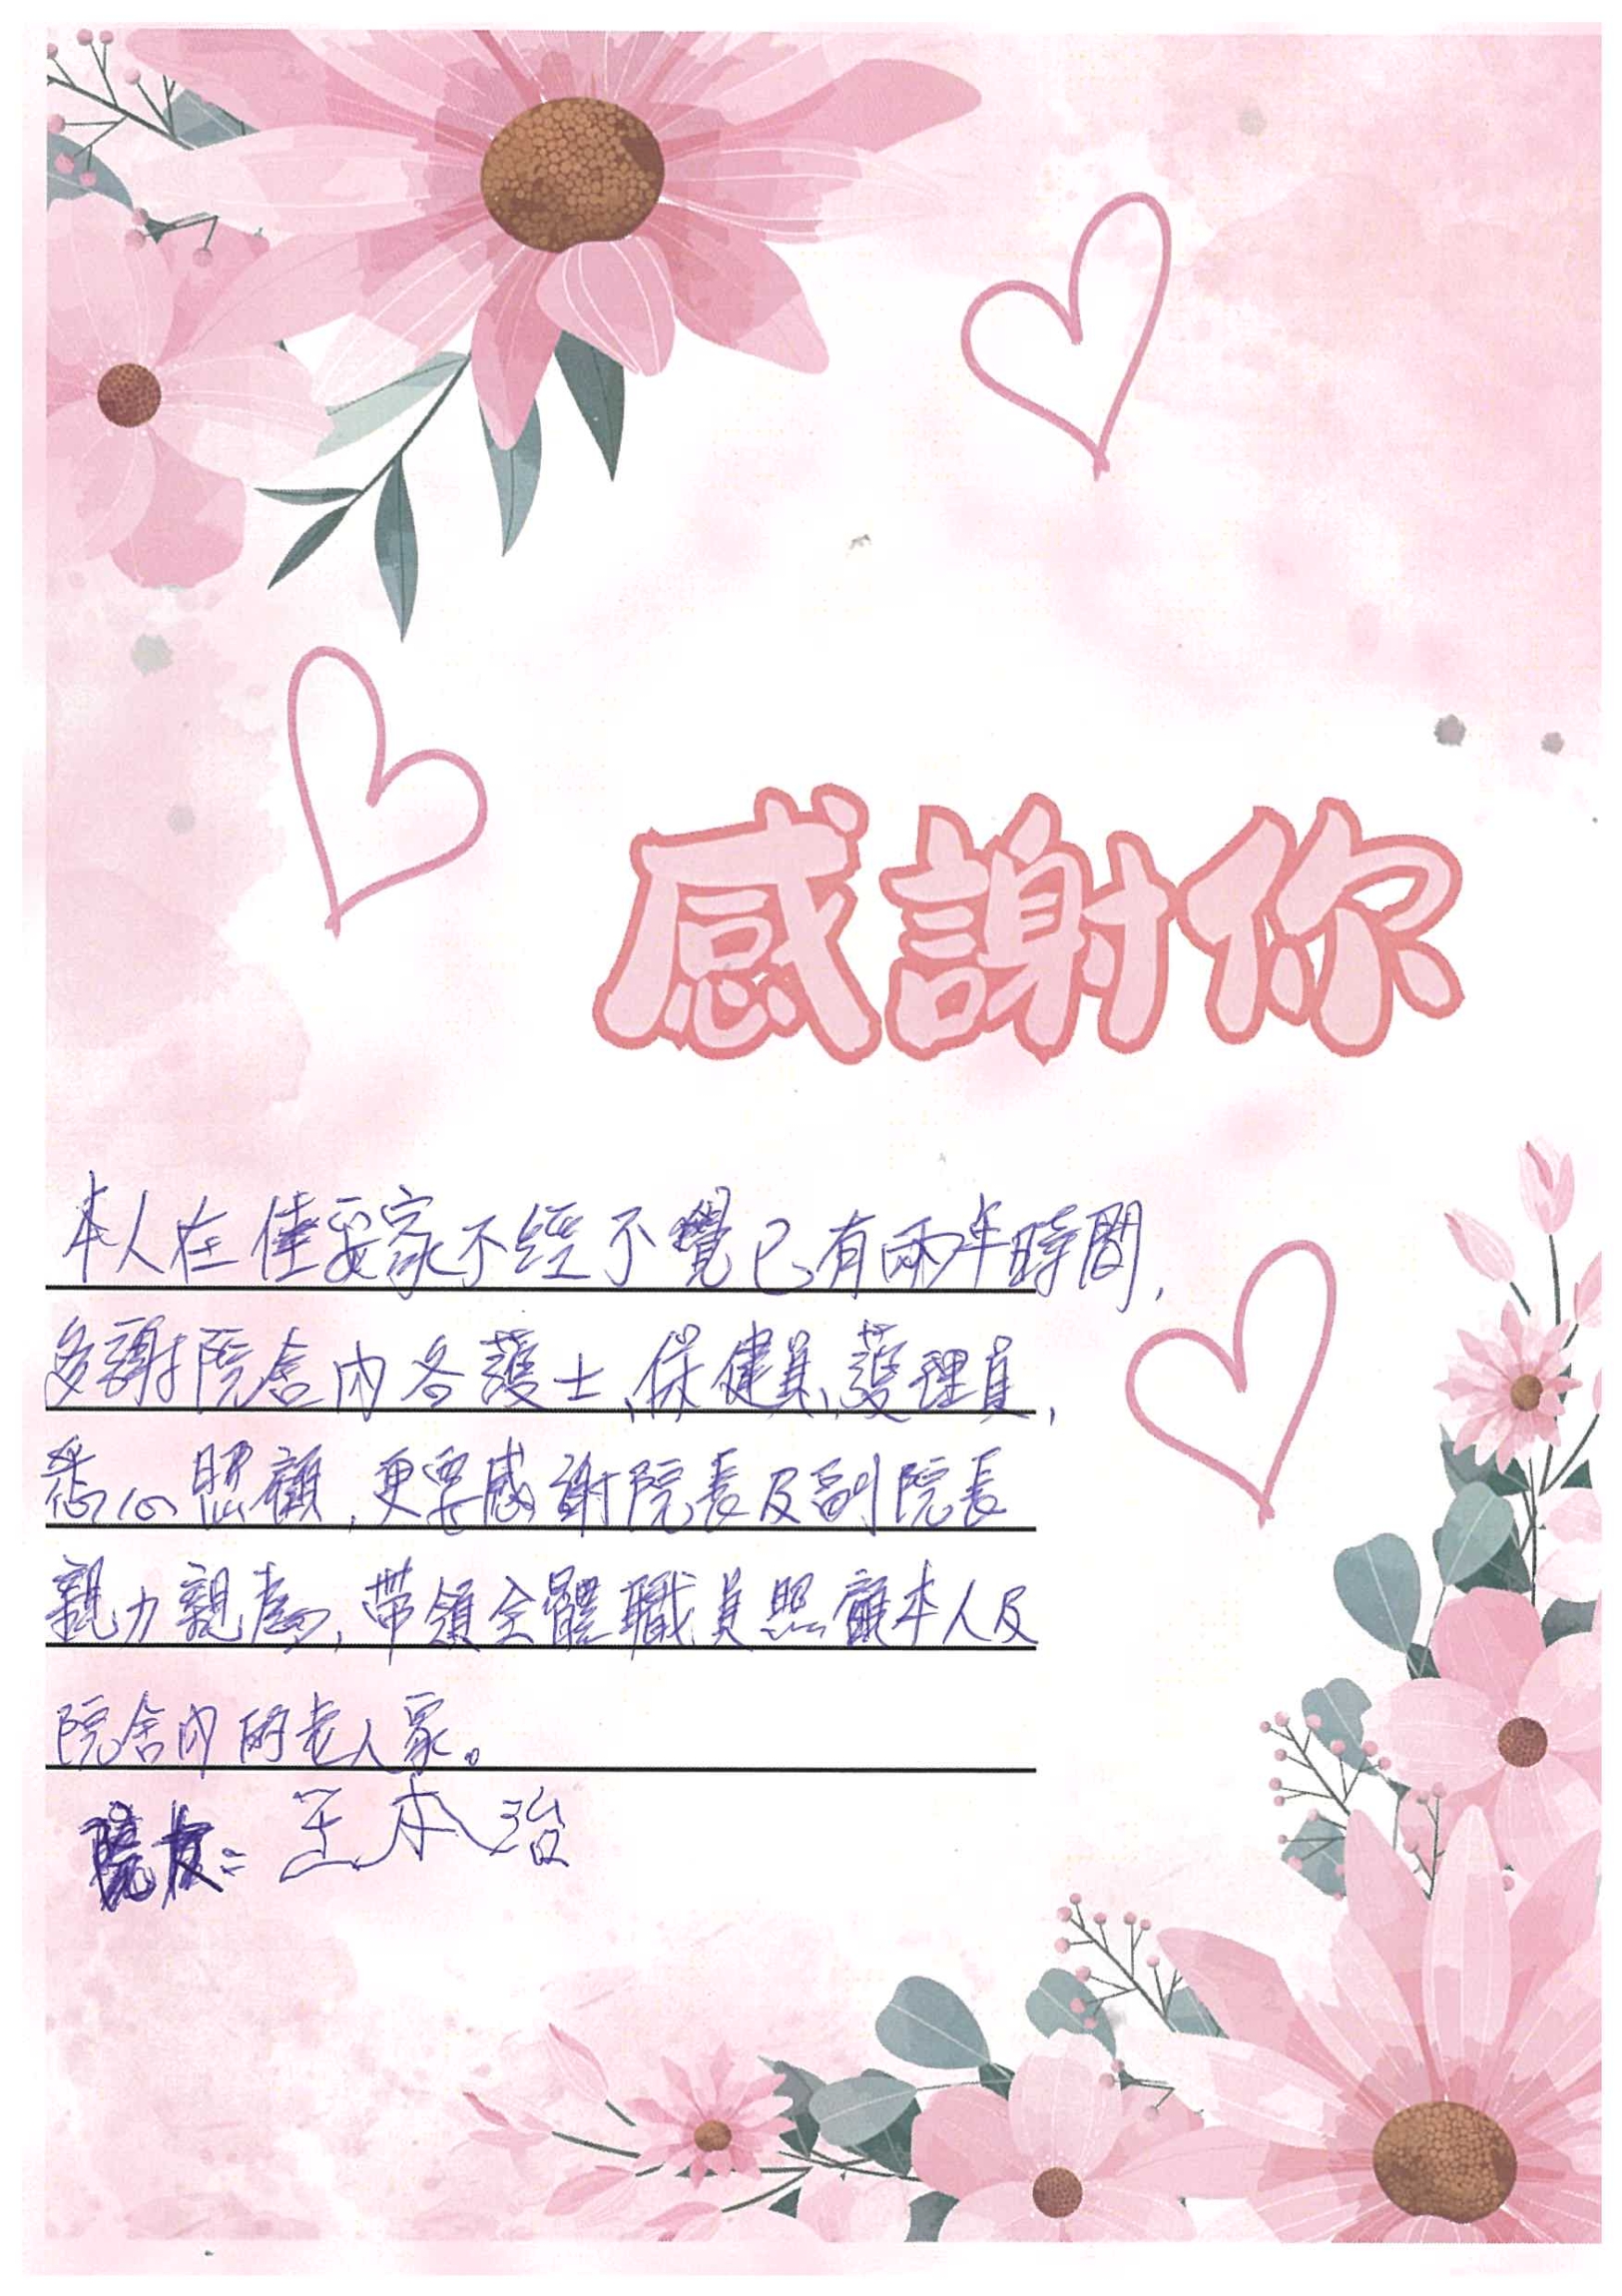 感謝你
本人在佳安家不經不覺已有兩年時間，
多謝院舍內各護士、保健員、護理員，
悉心照顧，更要感謝院長及副院長
親力親為，帶領全體職員照顧本人及
院舍內的老人家。
院友：王本治